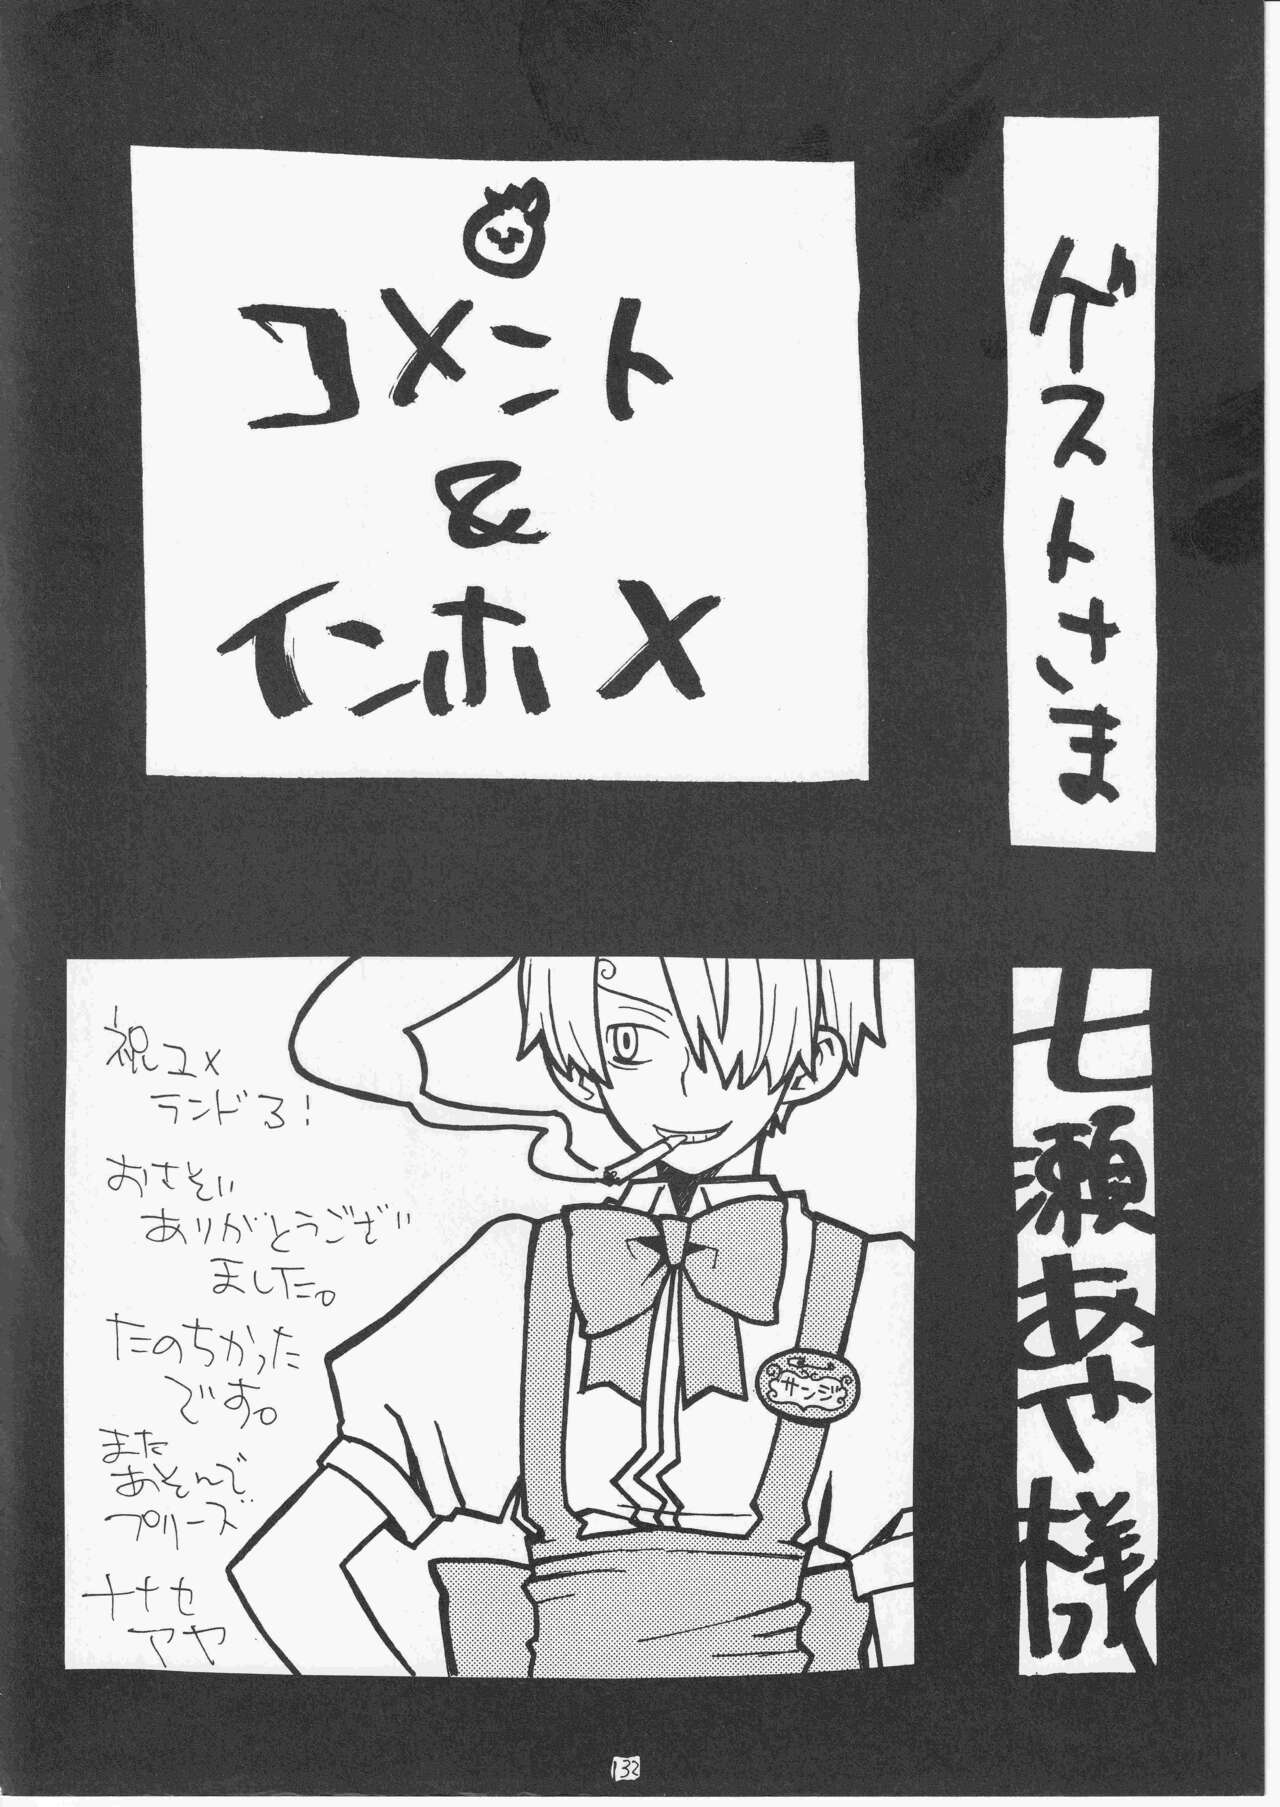 ゲストさま
コメント
&
インホメ
七瀬あや様
祝ユメ
ランド3!
おさそい
ありがとうござい
ました。
たのちかった
です。
また
あそんで
プリーズ
ナナセ
アヤ
サンジ
132